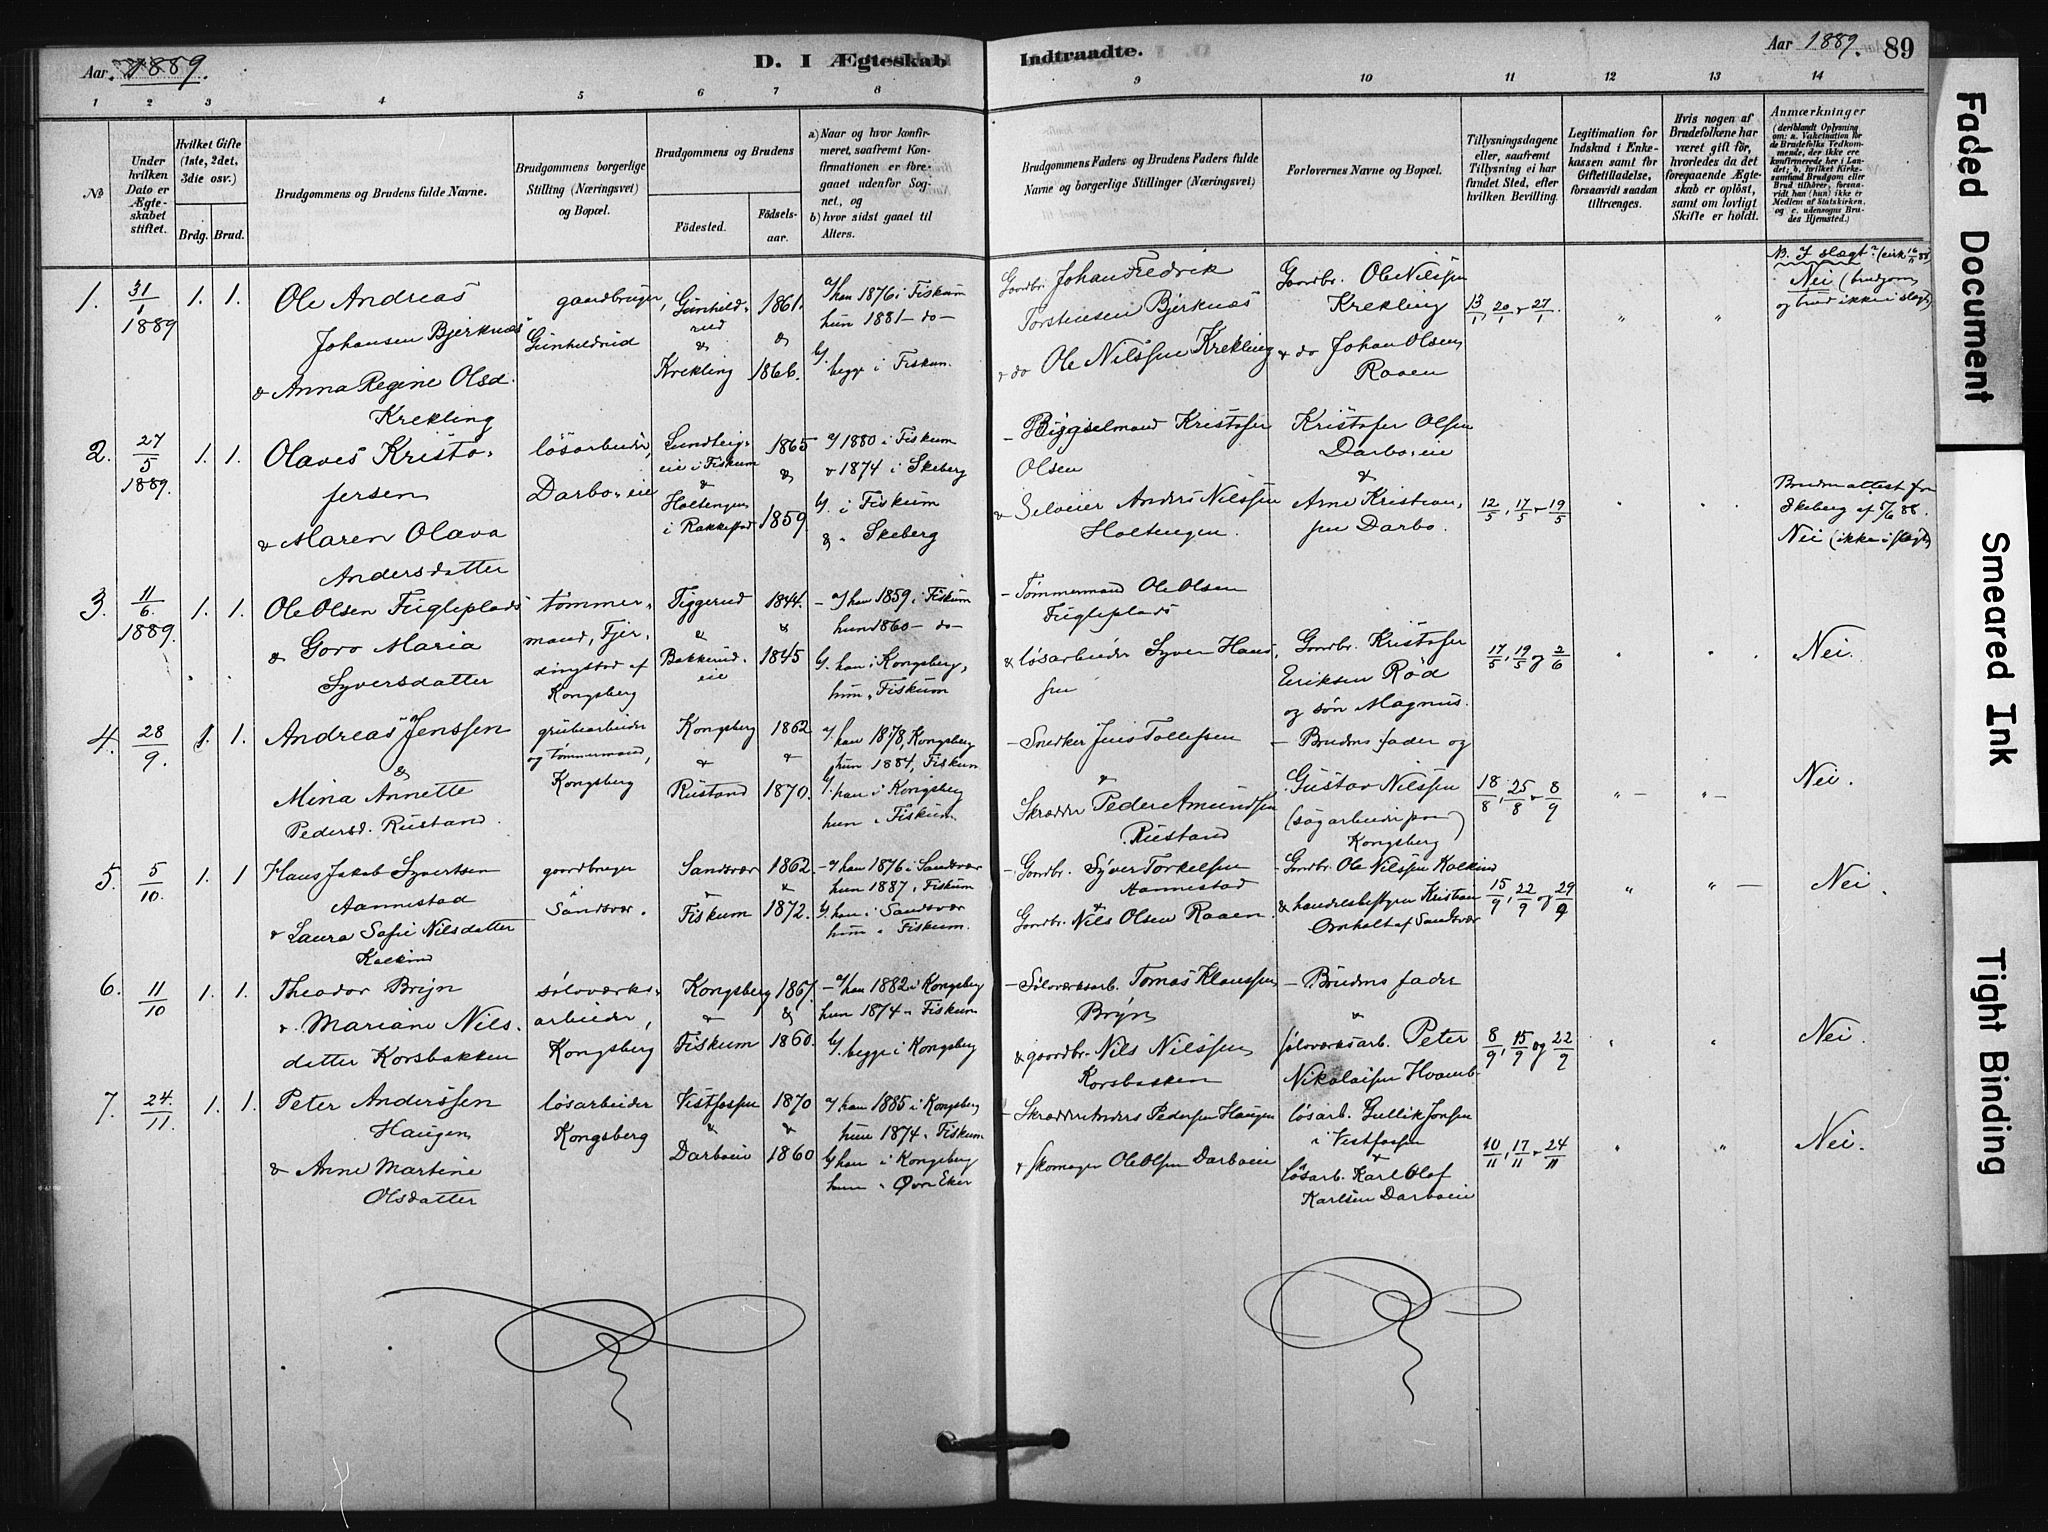 Aar 1889.
D. I Ægteskab
Indtraadte.
Aar 1889.
89
1
2
3
4
5
6
7
8
9
10
11
12
13
14
№
Under hvilken Dato er Ægteskabet stiftet.
Hvilket Gifte (1ste, 2det, 3die osv.)
Brdg.
Brud.
Brudgommens og Brudens fulde Navne.
Brudgommens borgerlige Stilling (Næringsvei) og Bopæl.
Brudgommens og Brudens
Födested.
Födselsaar.
a) Naar og hvor konfirmeret, saafremt Konfirmationen er foregaaet udenfor Sognet, og
b) hvor sidst gaaet til Alters.
Brudgommens Faders og Brudens Faders fulde Navne og borgerlige Stillinger (Næringsvei)
Forlovernes Navne og Bopæl.
Tillysningsdagene eller, saafremt Tillysning ei har fundet Sted, efter hvilken Bevilling.
Legitimation for Indskud i Enkekassen samt for Giftetilladelse, forsaavidt saadan tiltrænges.
Hvis nogen af Brudefolkene har været gift för, hvorledes da det foregaaende Ægteskab er oplöst, samt om lovligt Skifte er holdt.
Anmærkninger
(deriblandt Oplysning om: a. Vakcination for de Brudefolks Vedkommende, der ikke ere konfirmerede her i Landet; b. hvilket Kirkesamfund Brudgom eller Brud tilhörer, forsaavidt han (hun) ikke er Medlem af Statskirken, og c. udensogns Brudes Hjemsted.)
1.
31/1 1889
1.
1.
Ole Andreas
Johansen Bjerknæs
& Anna Regine Olsd.
Krekling
gaardbruger,
Gunhildrud
Gunhildrud
&
Krekling
1861.
&
1866.
a/ han 1876 i Fiskum
hun 1881 - do -
b/ begge i Fiskum
Gaardbr. Johan Fredrik
Torstensen Bjerknæs
& do Ole Nilssen Krekling
Gaardbr. Ole Nilssen
Krekling
& do Johan Olsen
Raaen
13/1, 20/1 & 27/1.
"
"
Nei (brudgom
og brud ikke i slægt)
2.
27/5 1889.
1.
1.
Olaves Kristo-
fersen
& Maren Olava
Andersdatter
løsarbeider,
Darbo-eie
Sundteig-
eie i Fiskum
&
Holtengen
i Rakkestad
1865
&
1859.
a/ 1880 i Fiskum
& 1874 i Skeberg
b/ i Fiskum
& " Skeberg
Kristofer
Olsen
& Anders Nilssen
Holtengen.
Kristofer Olsen
Darbo-eie
&
Arne Kristian-
sen Darbo.
12/5, 17/5 & 19/5
"
"
Brudeattest fra
Skeberg af 5/6 88.
Nei (ikke i slægt)
3.
11/6. 1889.
1.
1.
Ole Olsen Fugleplads
& Goro Maria
Syversdatter
tømmer-
mand, Fjer-
dingstad af
Kongsberg
Tiggerud
&
Bakkerud-
eie
1844.
&
1845
- a/ han 1859 i Fiskum
hun 1860 - do -
b/ han i Kongsberg,
hun " Fiskum
- Tømmermand Ole Olsen
Fugleplads
& løsarbeider Syver Han-
sen
Gaardbr. Kristofer
Eriksen Rød
og søn Magnus.
17/5, 19/5 og 2/6
"
"
Nei.
4.
28/9.
1.
1.
Andreas Jenssen
&
Mina Annette
Pedersd. Rustand.
grubearbeider
og tømmermand,
Kongsberg
Kongsberg
&
Rustand
1862
&
1870.
a/ han 1878, Kongsberg
hun 1884, Fiskum
b/ han i Kongsberg
hun i Fiskum
- Snedker Jens Tollefsen
&
Skrædder Peder Amundsen
Rustand
- Brudens fader og
Gustav Nilssen
(sagarbeider paa
Kongsberg)
18/8, 25/8 & 8/9
" -
" -
Nei.
5.
5/10.
1.
1
Hans Jakob Syvertsen
Aannestad
& Laura Sofie Nilsdatter
Kolkind
gaardbruger
i
Sandsvær.
Sandsvær
&
Fiskum
1862
&
1872.
- a/ han 1876 i Sandsvær
hun 1887, Fiskum
b/ han i Sandsvær
hun " Fiskum.
- Gaardbr. Syver Torkelsen
Aannestad
&
Gaardbr. Nils Olsen Raaen.
Gaardbr. Ole Nilssen Kolkind
& handelsbestyrer Kristian
Ornholt af Sandsvær
15/9, 22/9 og 29/9
"
" -
Nei.
6.
11/10
1.
1.
Theodor Bryn
& Mariane Nils-
datter Korsbakken
sølvværks-
arbeider,
Kongsberg
Kongsberg
&
Fiskum
1867.
&
1860.
- a/ han 1882 i Kongsberg
hun 1874 " Fiskum
b/ begge i Kongsberg
- Sølvværksarb. Tomas Klaussen
Bryn
& gaardbr. Nils Nilssen
Korsbakken
- Brudens fader
&
sølvværksarb. Peter
Nikolaisen Hvamb.
8/9, 15/9 og 22/9
"
"
Nei.
7.
24/11.
1.
1.
Peter Anderssen
Haugen
& Anne Martine
Olsdatter
løsarbeider
Kongsberg
Vestfossen
&
Darboeie
1870
&
1860
a/ han 1885 i Kongsberg
hun 1874 " Fiskum
b/ han i Kongsberg
hun " Øvre Eker
- Skrædder Anders Pedersen Haugen
& Skomager Ole Olsen Darboeie
løsarb. Gullik Jonsen
i Vestfossen
&
løsarb. Karl Olaf
Karlsen Darboeie
10/11, 17/11 & 24/11
"
"
Nei.
Faded Document
Smeared Ink
Tight Binding